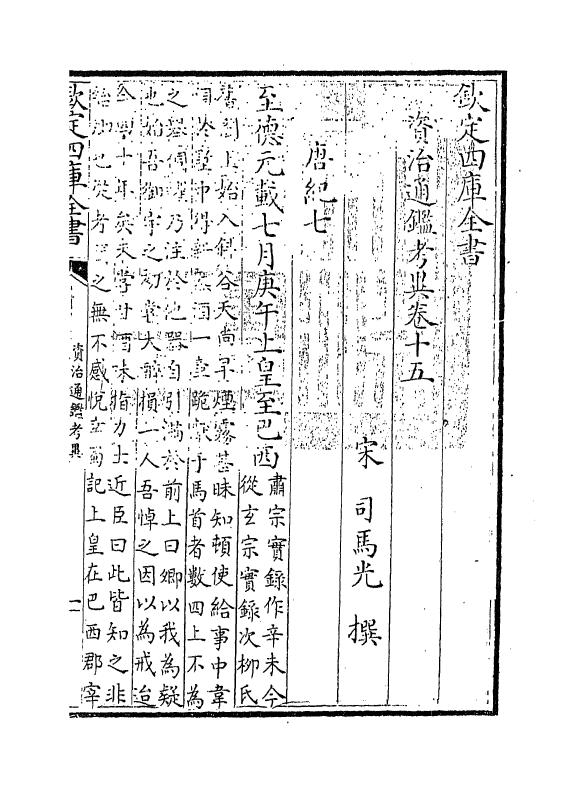 欽定四庫全書
資治通鑑考異卷十五
宋 司馬光 撰
唐紀七
至德元載七月庚午上皇至巴西
肅宗實錄作辛未今
從玄宗實錄次柳氏
舊聞上始入斜谷天尚早煙霧甚昧知頓使給事中韋
倜於墅中得新熟酒一壺跪獻于馬首者數四上不為
之舉倜懼乃注於他器自引滿於前上曰卿以我為疑
也始吾御宇之初嘗大醉損一人吾悼之因以為戒迨
今四十年矣未嘗甘酒味指力士近臣曰此皆知之非
紿卿也從者之無不感悅幸蜀記上皇在巴西郡宰
欽定四庫全書
資治通鑑考異
一